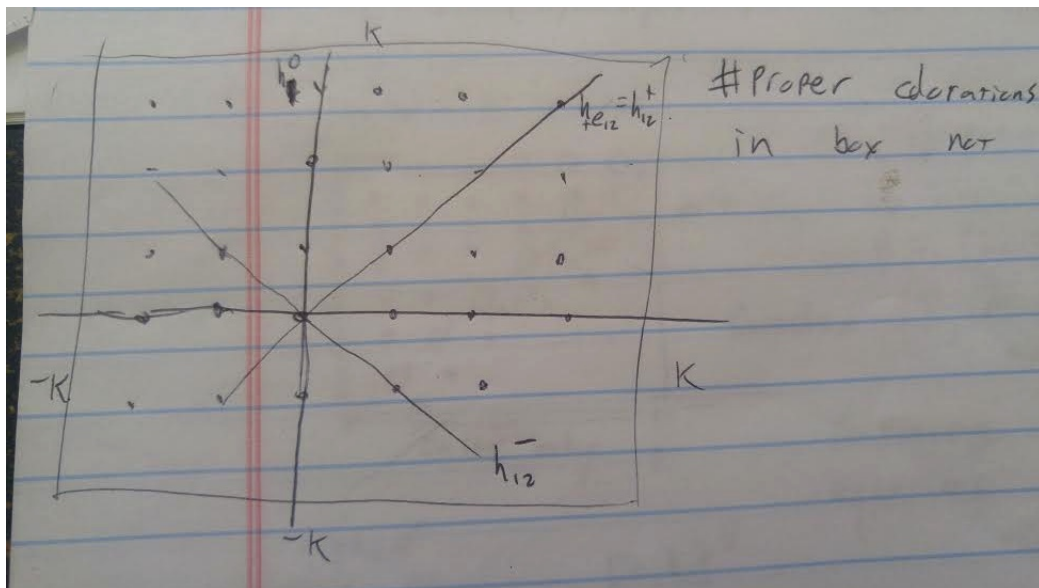 K
h_1^0
h_{+e_{12}} = h_{12}^+
# Proper colorations
in box not
-K
K
h_{12}^-
-K